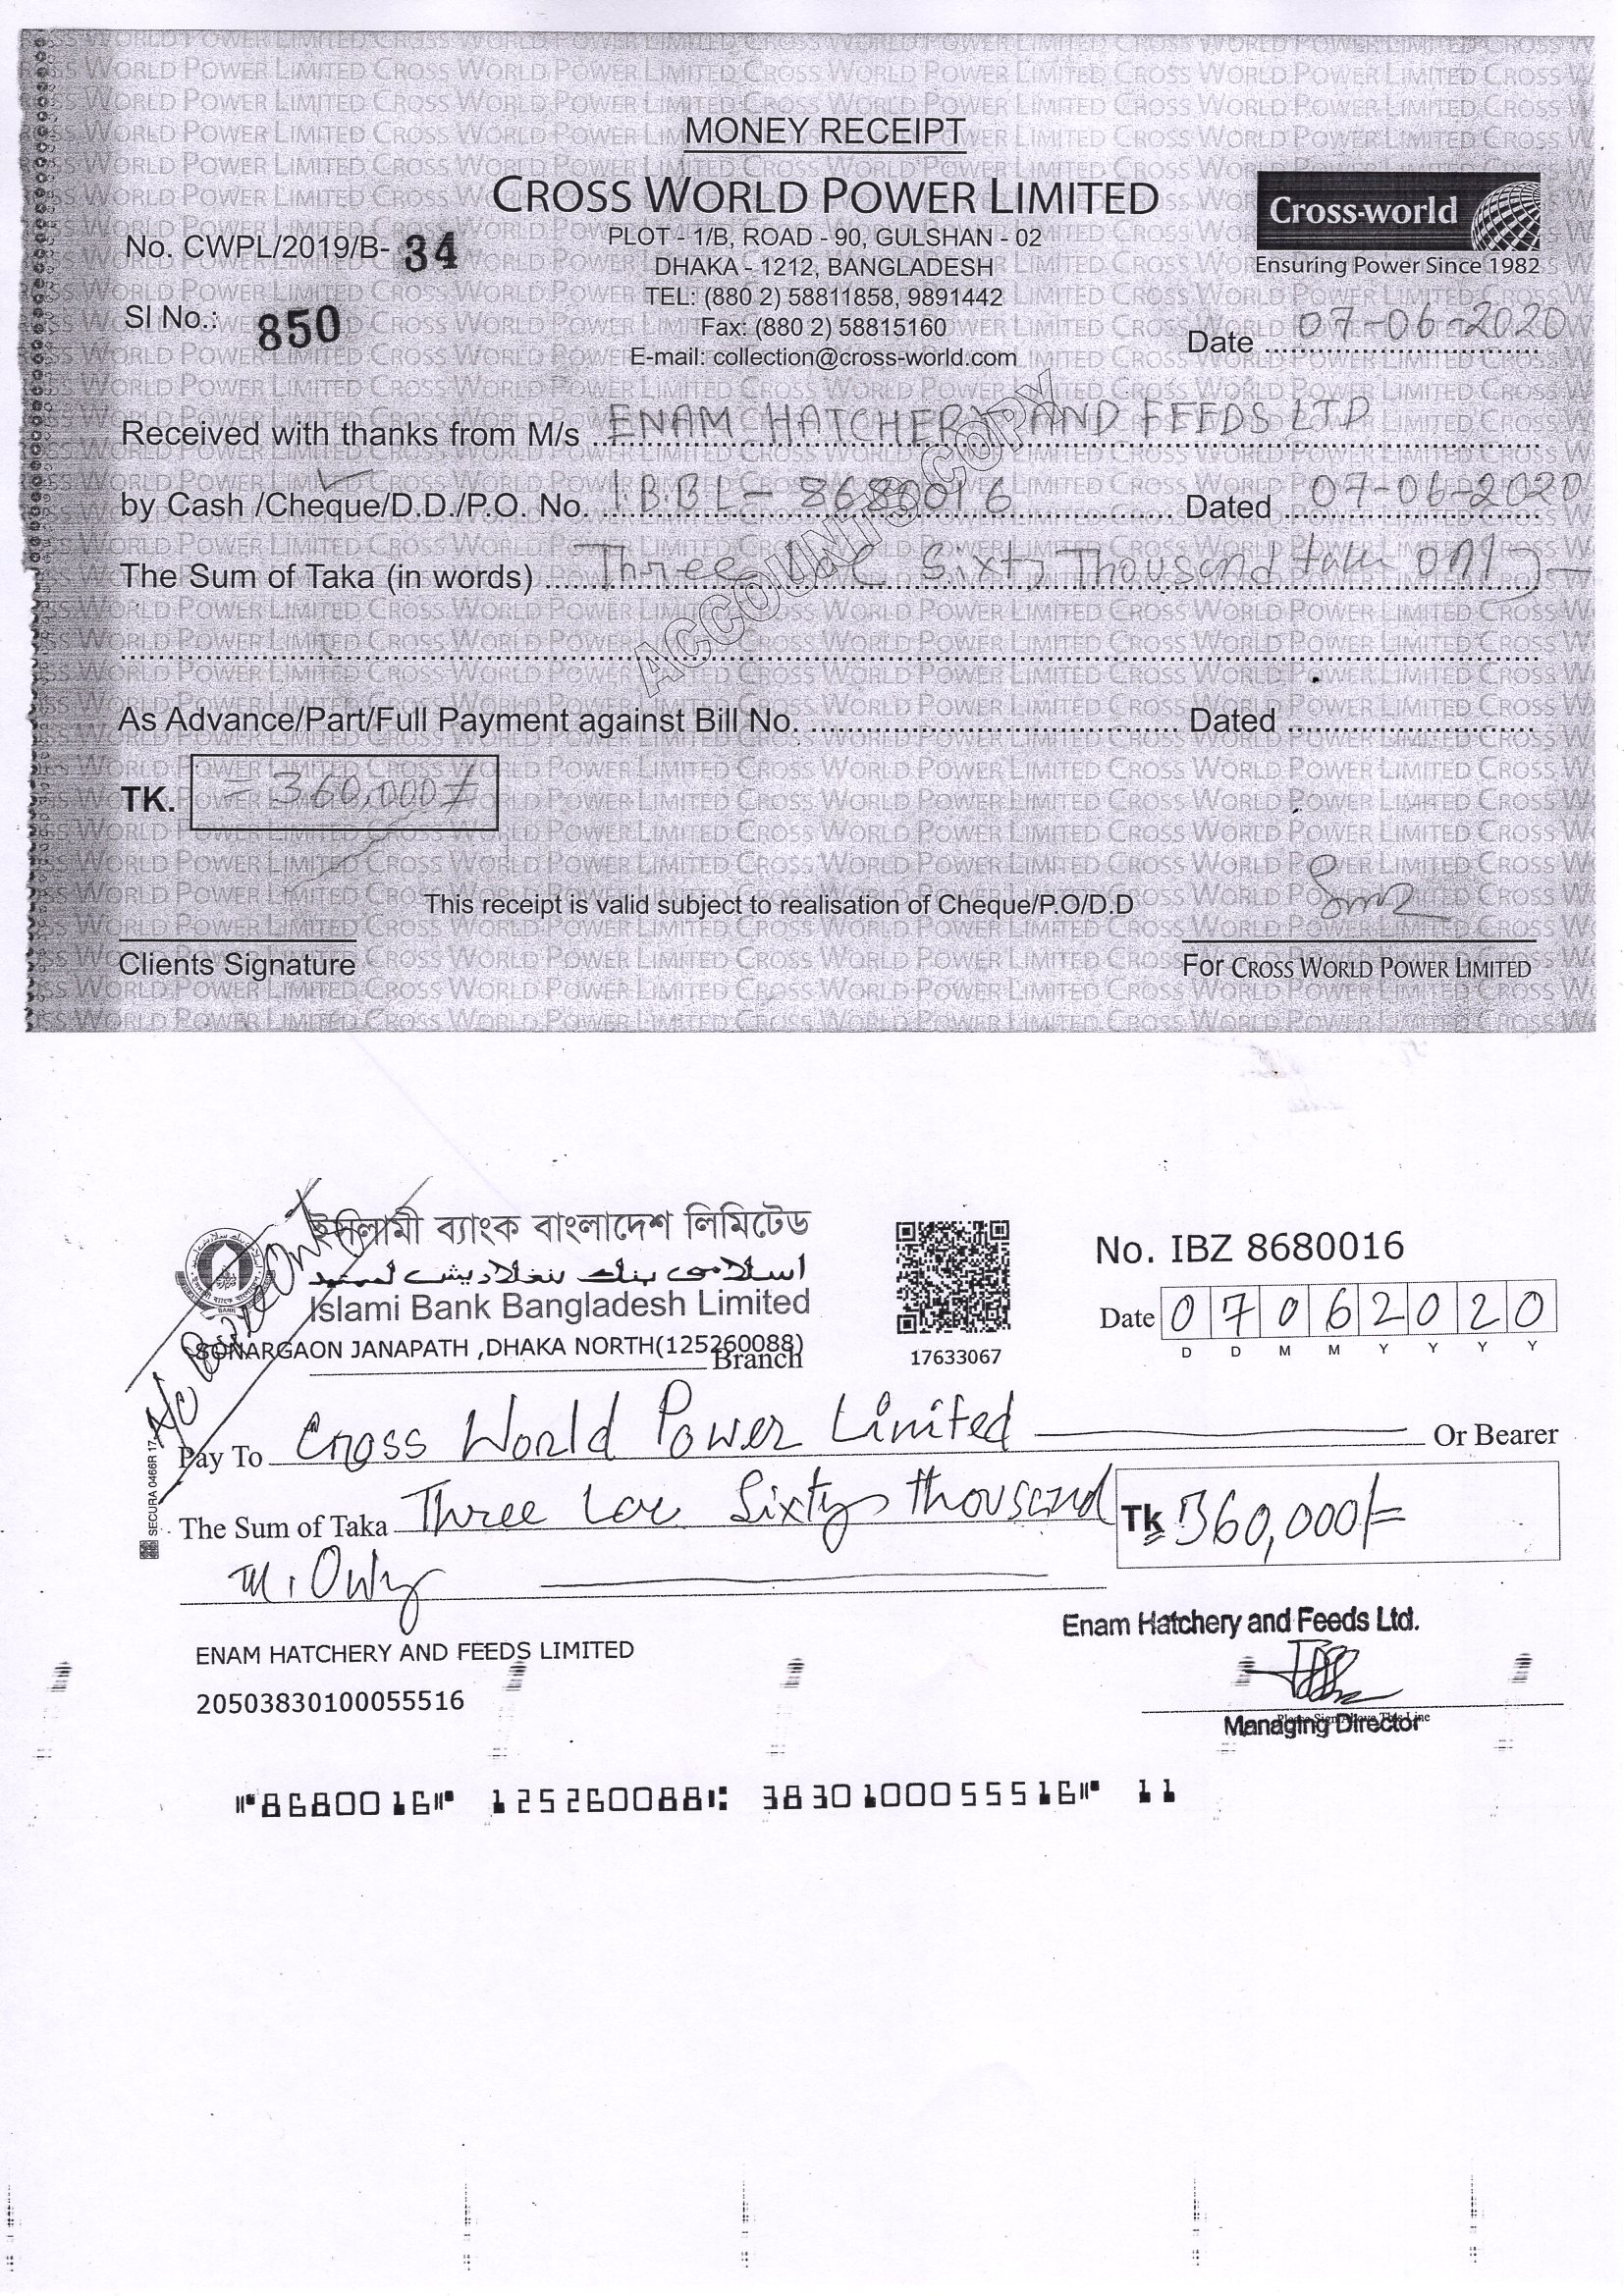 MONEY RECEIPT
CROSS WORLD POWER LIMITED
Cross-world
Ensuring Power Since 1982
No. CWPL/2019/B- 34
PLOT - 1/B, ROAD - 90, GULSHAN - 02
DHAKA - 1212, BANGLADESH
TEL: (880 2) 58811858, 9891442
Sl No.: 850
Fax: (880 2) 58815160
E-mail: collection@cross-world.com
Date 07-06-2020
Received with thanks from M/s ENAM HATCHERY AND FEEDS LTD
by Cash /Cheque/D.D./P.O. No. I.B.B.L - 8680016 Dated 07-06-2020
The Sum of Taka (in words) Three Lac Sixty Thousand taka only
ACCOUNTS COPY
As Advance/Part/Full Payment against Bill No. Dated
TK. = 360,000/=
This receipt is valid subject to realisation of Cheque/P.O/D.D
Clients Signature
For CROSS WORLD POWER LIMITED
ইসলামী ব্যাংক বাংলাদেশ লিমিটেড
اسلامى بنك بنغلاديش لميتيد
Islami Bank Bangladesh Limited
SONARGAON JANAPATH ,DHAKA NORTH(125260088)
Branch
17633067
No. IBZ 8680016
Date 07062020
D D M M Y Y Y Y
A/C Payee Only
SECURA 0466R 17
Pay To Cross World Power Limited Or Bearer
The Sum of Taka Three Lac Sixty thousand
Tk 360,000/=
Tk. Only
Enam Hatchery and Feeds Ltd.
ENAM HATCHERY AND FEEDS LIMITED
20503830100055516
Please Sign Above This Line
Managing Director
⑈8680016⑈ 125260088⑆ 3830100055516⑈ 11